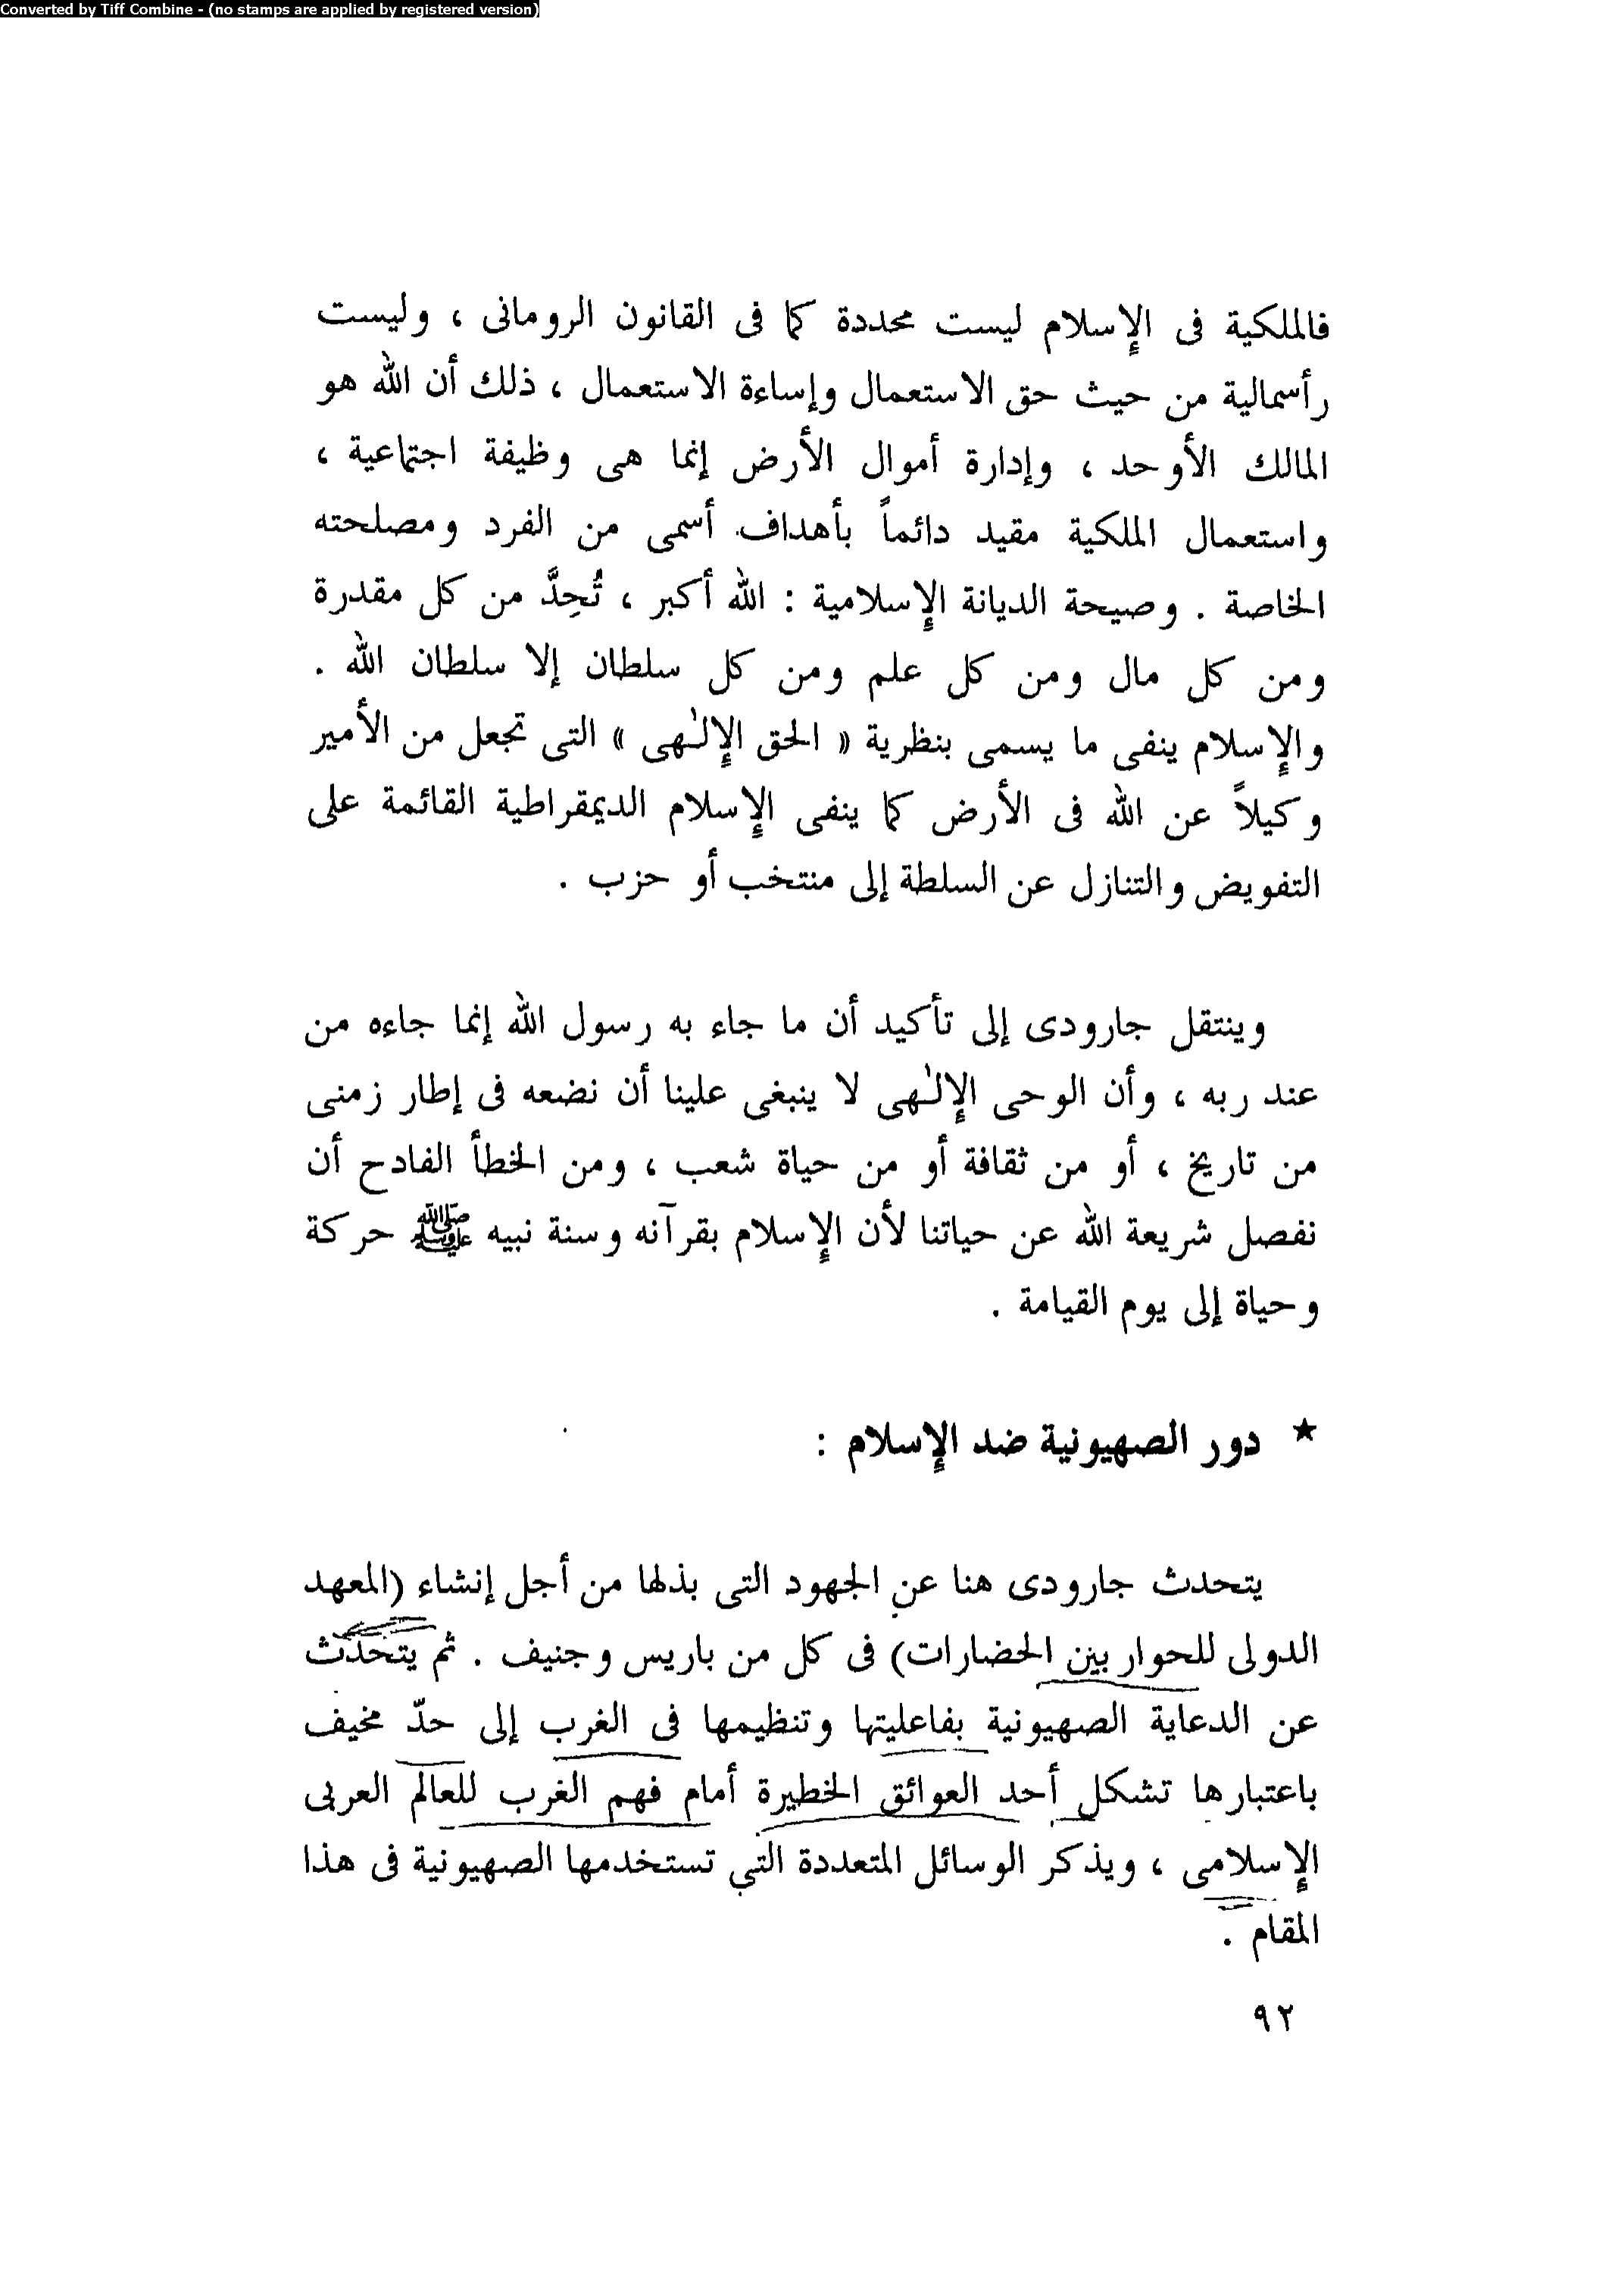 Converted by Tiff Combine - (no stamps are applied by registered version)
فالملكية فى الإسلام ليست محددة كما فى القانون الرومانى ، وليست
رأسمالية من حيث حق الاستعمال وإساءة الاستعمال ، ذلك أن الله هو
المالك الأوحد ، وإدارة أموال الأرض إنما هى وظيفة اجتماعية ،
واستعمال الملكية مقيد دائماً بأهداف أسمى من الفرد ومصلحته
الخاصة . وصيحة الديانة الإسلامية : الله أكبر ، تُحِدَّ من كل مقدرة
ومن كل مال ومن كل علم ومن كل سلطان إلا سلطان الله .
والإسلام ينفى ما يسمى بنظرية « الحق الإلٰهى » التى تجعل من الأمير
وكيلاً عن الله فى الأرض كما ينفى الإسلام الديمقراطية القائمة على
التفويض والتنازل عن السلطة إلى منتخب أو حزب .
وينتقل جارودى إلى تأكيد أن ما جاء به رسول الله إنما جاءه من
عند ربه ، وأن الوحى الإلٰهى لا ينبغى علينا أن نضعه فى إطار زمنى
من تاريخ ، أو من ثقافة أو من حياة شعب ، ومن الخطأ الفادح أن
نفصل شريعة الله عن حياتنا لأن الإسلام بقرآنه وسنة نبيه ﷺ حركة
وحياة إلى يوم القيامة .
★ دور الصهيونية ضد الإسلام :
يتحدث جارودى هنا عن الجهود التى بذلها من أجل إنشاء (المعهد
الدولى للحوار بين الحضارات) فى كل من باريس وجنيف . ثم يتحدث
عن الدعاية الصهيونية بفاعليتها وتنظيمها فى الغرب إلى حدّ مخيف
باعتبارها تشكل أحد العوائق الخطيرة أمام فهم الغرب للعالم العربى
الإسلامى ، ويذكر الوسائل المتعددة التى تستخدمها الصهيونية فى هذا
المقام .
٩٢